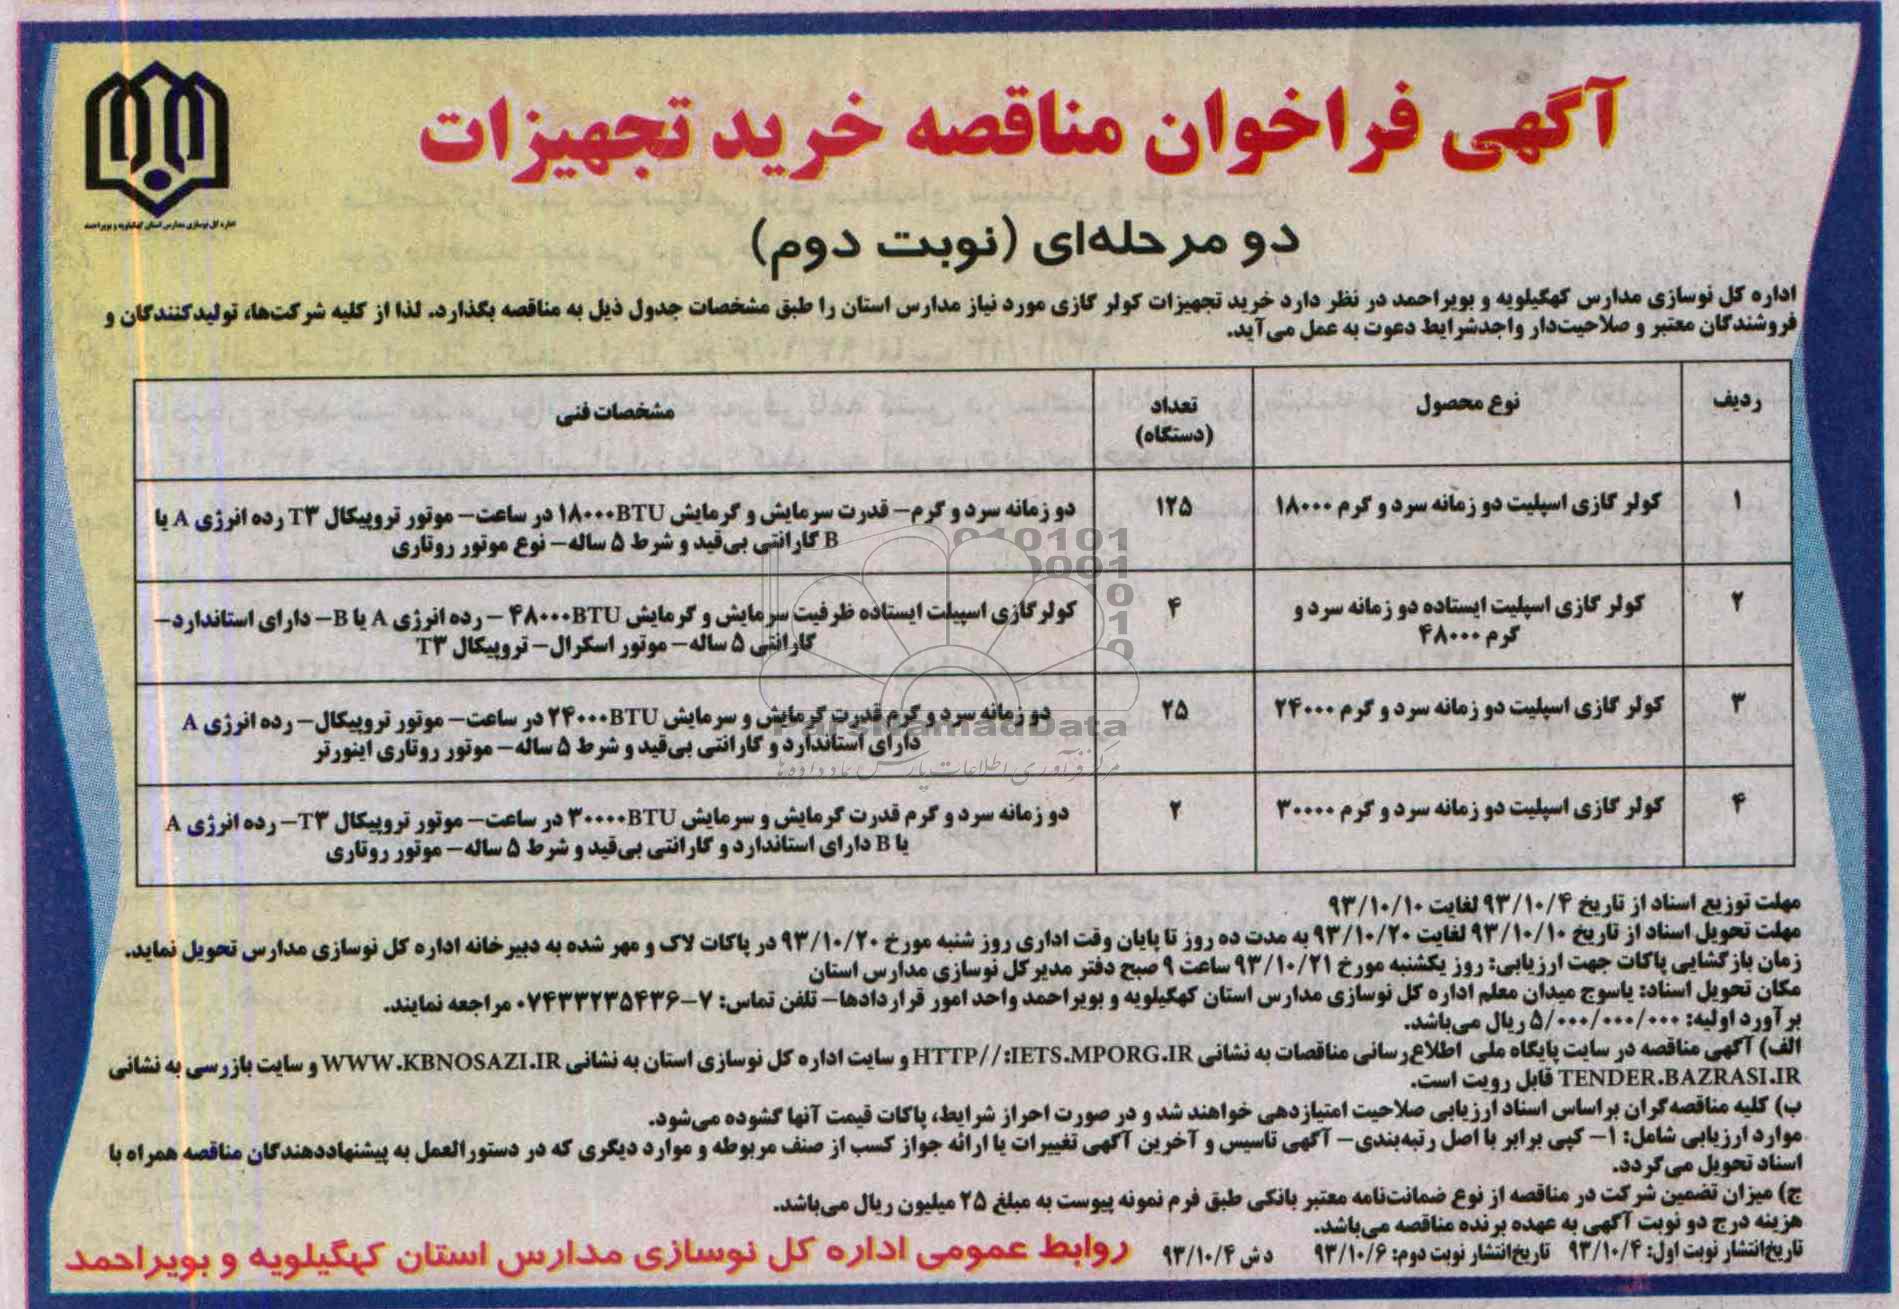 آگهی فراخوان مناقصه خرید تجهیزات
دو مرحله‌ای (نوبت دوم)
اداره کل نوسازی مدارس استان کهگیلویه و بویراحمد
اداره کل نوسازی مدارس کهگیلویه و بویراحمد در نظر دارد خرید تجهیزات کولر گازی مورد نیاز مدارس استان را طبق مشخصات جدول ذیل به مناقصه بگذارد. لذا از کلیه شرکت‌ها، تولیدکنندگان و
فروشندگان معتبر و صلاحیت‌دار واجدشرایط دعوت به عمل می‌آید.
ردیف نوع محصول تعداد (دستگاه) مشخصات فنی
۱ کولر گازی اسپلیت دو زمانه سرد و گرم ۱۸۰۰۰ ۱۲۵ دو زمانه سرد و گرم– قدرت سرمایش و گرمایش ۱۸۰۰۰BTU در ساعت– موتور تروپیکال T۳ رده انرژی A یا
B گارانتی بی‌قید و شرط ۵ ساله– نوع موتور روتاری
۲ کولر گازی اسپلیت ایستاده دو زمانه سرد و
گرم ۴۸۰۰۰ ۴ کولرگازی اسپیلت ایستاده ظرفیت سرمایش و گرمایش ۴۸۰۰۰BTU – رده انرژی A یا B– دارای استاندارد–
گارانتی ۵ ساله– موتور اسکرال– تروپیکال T۳
۳ کولر گازی اسپلیت دو زمانه سرد و گرم ۲۴۰۰۰ ۲۵ دو زمانه سرد و گرم قدرت گرمایش و سرمایش ۲۴۰۰۰BTU در ساعت– موتور تروپیکال– رده انرژی A
دارای استاندارد و گارانتی بی‌قید و شرط ۵ ساله– موتور روتاری اینورتر
۴ کولر گازی اسپلیت دو زمانه سرد و گرم ۳۰۰۰۰ ۲ دو زمانه سرد و گرم قدرت گرمایش و سرمایش ۳۰۰۰۰BTU در ساعت– موتور تروپیکال T۳– رده انرژی A
یا B دارای استاندارد و گارانتی بی‌قید و شرط ۵ ساله– موتور روتاری
ParsNamadData
مرکز فرآوری اطلاعات پارس نماد داده‌ها
مهلت توزیع اسناد از تاریخ ۹۳/۱۰/۴ لغایت ۹۳/۱۰/۱۰
مهلت تحویل اسناد از تاریخ ۹۳/۱۰/۱۰ لغایت ۹۳/۱۰/۲۰ به مدت ده روز تا پایان وقت اداری روز شنبه مورخ ۹۳/۱۰/۲۰ در پاکات لاک و مهر شده به دبیرخانه اداره کل نوسازی مدارس تحویل نماید.
زمان بازگشایی پاکات جهت ارزیابی: روز یکشنبه مورخ ۹۳/۱۰/۲۱ ساعت ۹ صبح دفتر مدیرکل نوسازی مدارس استان
مکان تحویل اسناد: یاسوج میدان معلم اداره کل نوسازی مدارس استان کهگیلویه و بویراحمد واحد امور قراردادها– تلفن تماس: ۷–۰۷۴۳۳۲۳۵۴۳۶ مراجعه نمایند.
برآورد اولیه: ۵/۰۰۰/۰۰۰/۰۰۰ ریال می‌باشد.
الف) آگهی مناقصه در سایت پایگاه ملی اطلاع‌رسانی مناقصات به نشانی HTTP//:IETS.MPORG.IR و سایت اداره کل نوسازی استان به نشانی WWW.KBNOSAZI.IR و سایت بازرسی به نشانی
TENDER.BAZRASI.IR قابل رویت است.
ب) کلیه مناقصه‌گران براساس اسناد ارزیابی صلاحیت امتیازدهی خواهند شد و در صورت احراز شرایط، پاکات قیمت آنها گشوده می‌شود.
موارد ارزیابی شامل: ۱– کپی برابر با اصل رتبه‌بندی– آگهی تاسیس و آخرین آگهی تغییرات یا ارائه جواز کسب از صنف مربوطه و موارد دیگری که در دستورالعمل به پیشنهاددهندگان مناقصه همراه با
اسناد تحویل می‌گردد.
ج) میزان تضمین شرکت در مناقصه از نوع ضمانت‌نامه معتبر بانکی طبق فرم نمونه پیوست به مبلغ ۲۵ میلیون ریال می‌باشد.
هزینه درج دو نوبت آگهی به عهده برنده مناقصه می‌باشد.
تاریخ‌انتشار نوبت اول: ۹۳/۱۰/۴ تاریخ‌انتشار نوبت دوم: ۹۳/۱۰/۶ د ش ۹۳/۱۰/۴
روابط عمومی اداره کل نوسازی مدارس استان کهگیلویه و بویراحمد